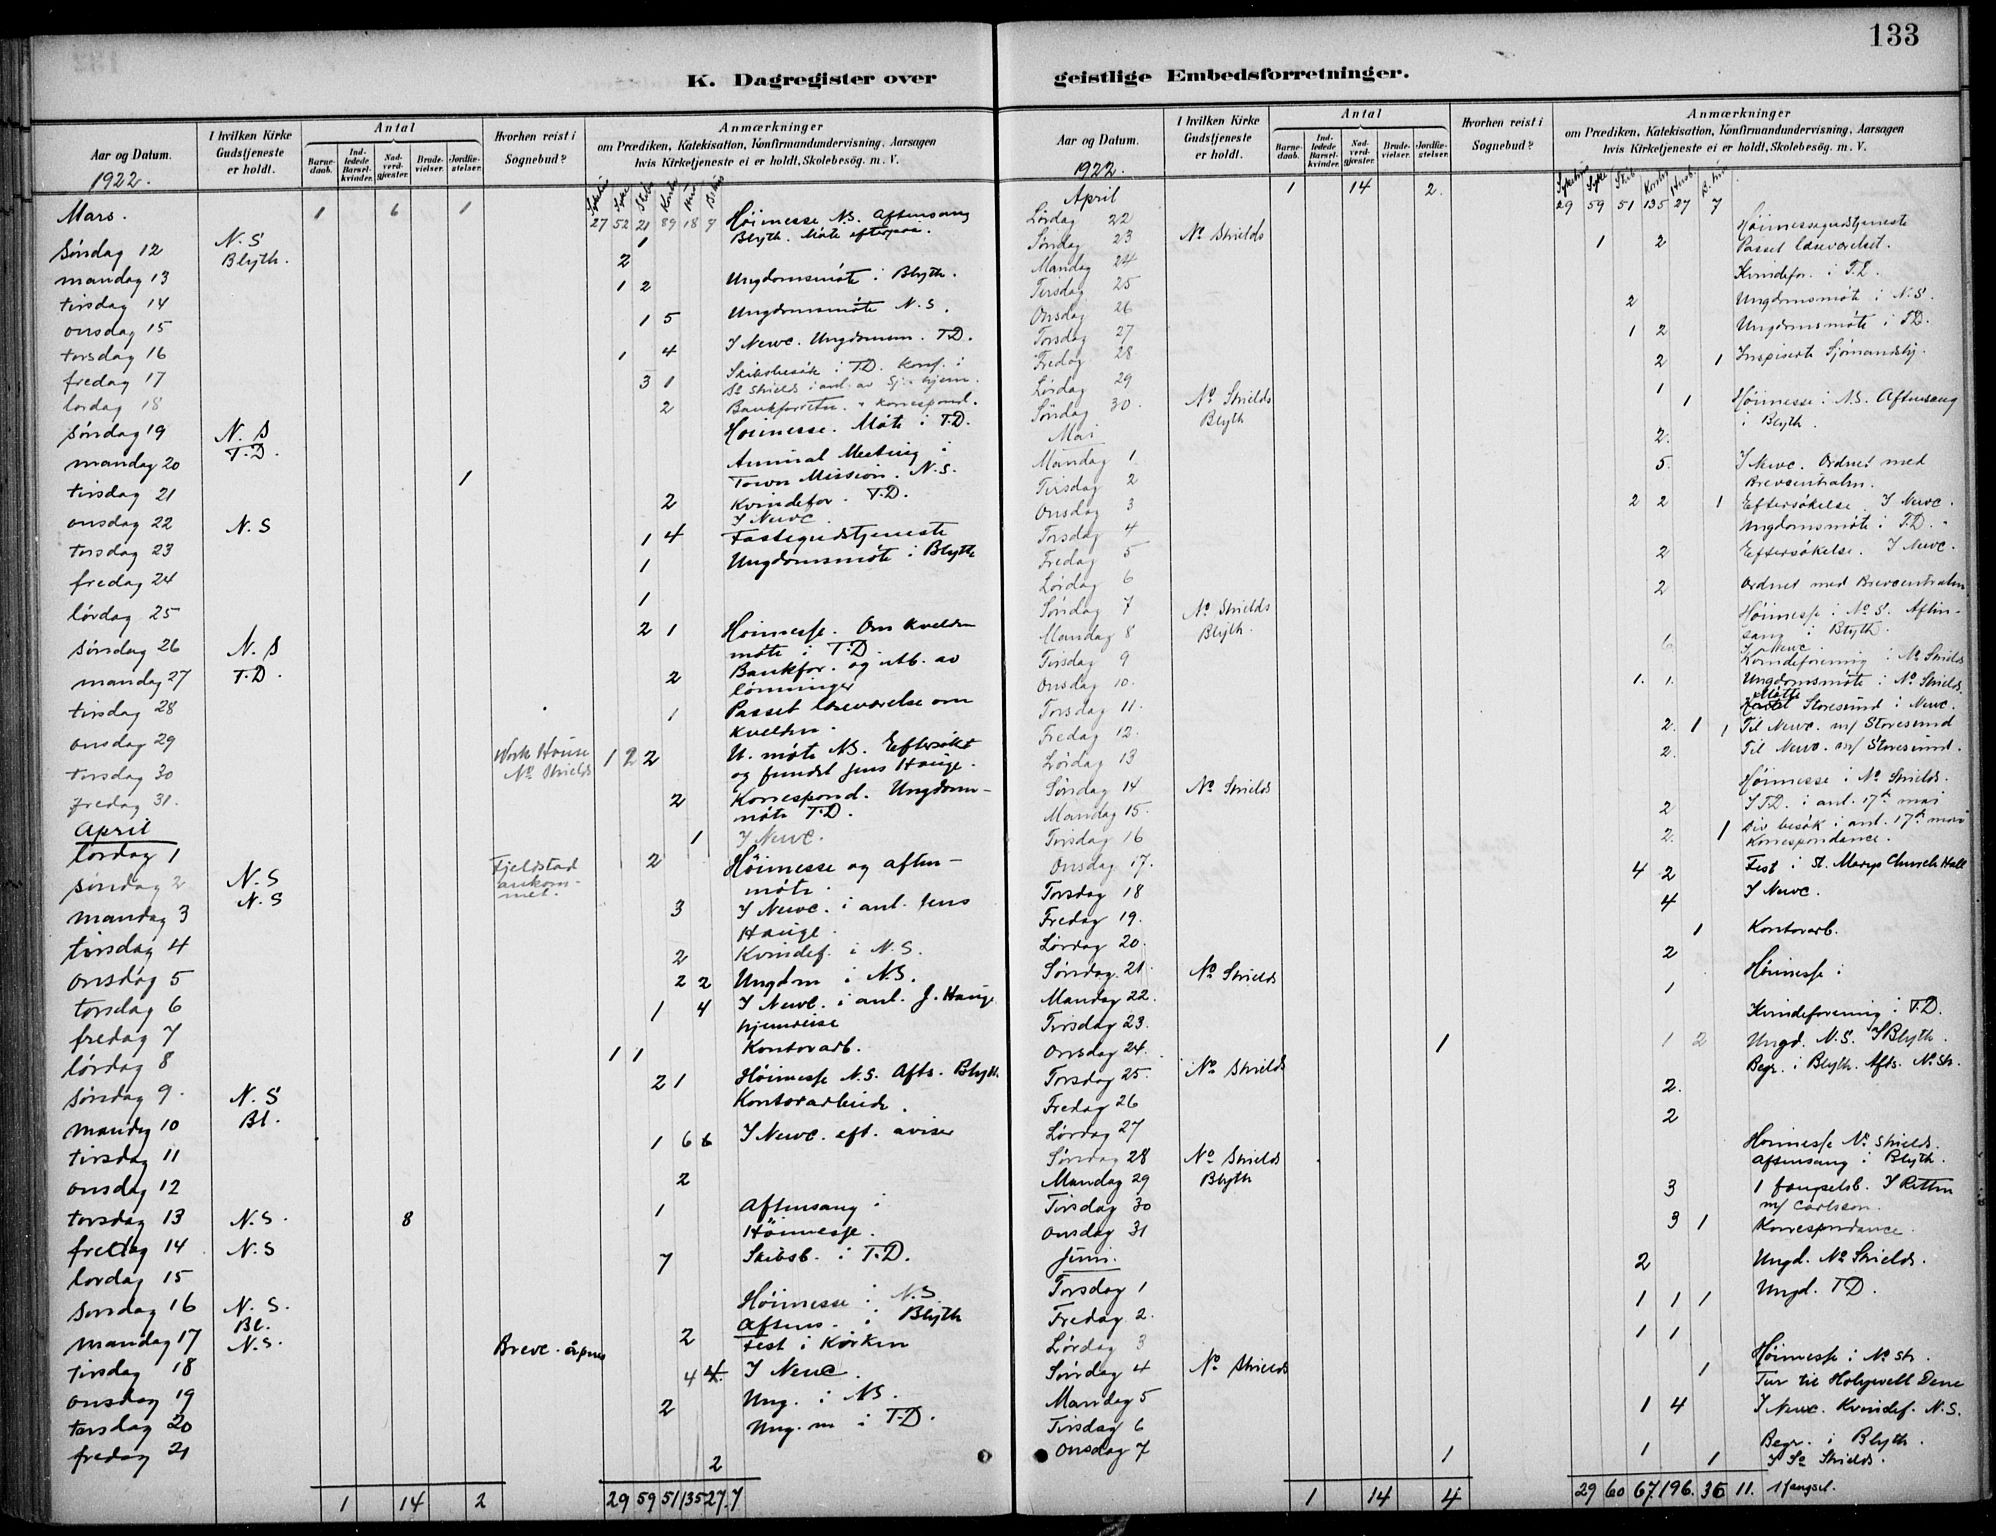 133
K. Dagregister over geistlige Embedsforretninger.
Aar og Datum.
I hvilken Kirke Gudstjeneste er holdt.
Antal
Barne-daab.
Ind-ledede Barsel-kvinder.
Nad-verd-gjæster.
Brude-vielser.
Jordfæ-stelser.
Hvorhen reist i Sognebud?
Anmærkninger
om Prædiken, Katekisation, Konfirmandundervisning, Aarsagen
hvis Kirketjeneste ei er holdt, Skolebesög. m. V.
1922.
Mars. 1 6 1 27 52 21 89 18 7 Höimesse N.S. Aftensang
Söndag 12 N.S Blyth. 1 Blyth. Möte efterpaa.
mandag 13 2
tirsdag 14 1 2 Ungdomsmöte i Blyth.
onsdag 15 1 5 Ungdomsmöte N.S.
torsdag 16 1 4 I Newc. Ungdomsm. T.D.
fredag 17 3 1 Skibsbesök i T.D. Konf. i
So Shields i anl. av Sj. hjem.
lördag 18 2 Bankforretn. Korrespond.
Söndag 19 N. S T.D. Höimesse. Möte i T.D.
mandag 20 1 Annual Meeting i
Town Mission. N.S.
tirsdag 21 2 Kvindefor. T.D.
I Newc.
onsdag 22 N.S 1 4 Fastegudstjeneste
torsdag 23 1 Ungdomsmöte i Blyth
fredag 24 1
lördag 25 2 1
söndag 26 N. S T.D. Höimesse. Om kvelden
möte i T.D.
mandag 27 2 Bankfor. og utb. av
lönninger
tirsdag 28 1 Passet læseværelse om
kvelden.
onsdag 29 Work House No Shields 1 2 2 U. möte N.S. Eftersökt
og fundet Jens Hauge.
torsdag 30 2 Korrespond. Ungdoms-
möte T.D.
fredag 31. 1 I Newc.
April
lördag 1 Fjeldstad ankom-met. 2
söndag 2 N.S N.S Höimesse og aften-
möte.
mandag 3 3 I Newc. i anl. Jens
Hauge.
tirsdag 4 2 Kvindef. i N.S.
onsdag 5 2 2 Ungdm i N.S.
torsdag 6 1 4 I Newc. i anl. J. Hauge
hjemreise
fredag 7 1 1 Kontorarb.
lördag 8 2 1
söndag 9. N.S Bl. Höimesse N.S. Afts. Blyth.
Kontorarbeide.
mandag 10 1 6 6 I Newc. eft. aviser
tirsdag 11 2
onsdag 12 1
torsdag 13 N.S. 8 Aftensang i
fredag 14 N.S Höimesse.
lördag 15 7 Skibsb. i T.D.
Söndag 16 N.S. Bl. Höimesse i N.S.
Aftens. i Blyth
mandag 17 N.S. Brevc. åpnes 2 Fest i Kirken
tirsdag 18 4 4 I Newc.
onsdag 19 2 Ung. i N.S.
torsdag 20 Ung. m i T.D.
fredag 21 2
1 14 2 29 59 51 135 27 7
Aar og Datum.
I hvilken Kirke Gudstjeneste er holdt.
Antal
Barne-daab.
Ind-ledede Barsel-kvinder.
Nad-verd-gjæster.
Brude-vielser.
Jordfæ-stelser.
Hvorhen reist i Sognebud?
Anmærkninger
om Prædiken, Katekisation, Konfirmandundervisning, Aarsagen
hvis Kirketjeneste ei er holdt, Skolebesög. m. V.
1922.
April 1 14 2. 29 59 51 135 27 7
Lördag 22
Söndag 23 No Shields 1 2 Höimessegudstjeneste
Passet læseværelset.
Mandag 24 Kvindefor. i T.D.
Tirsdag 25 2 Ungdomsmöte i N.S.
Onsdag 26 1 2 Ungdomsmöte i T.D.
Torsdag 27 2 1 Inspiserte Sjömandshj.
Fredag 28 1
Lördag 29 1
Söndag 30. No Shields Blyth Höimesse i N.S. Aftensang
i Blyth.
Mai 2.
Mandag 1. 5. I Newc. Ordnet med
Brevcentralen.
Tirsdag 2 2 2 1 Eftersökelse I Newc.
Onsdag 3 Ungdomsmöte i T.D.
Torsdag 4 2 Eftersökelse. I Newc.
Fredag 5 2 Ordnet med Brevcentralen
Lördag 6
Söndag 7 No Shields Blyth. Höimesse i No S. Aften-
sang i Blyth.
Mandag 8 6. I Newc.
Tirsdag 9 Kvindeforening i No Shields
Onsdag 10. 1. 1. Ungdomsmöte i No Shields.
Torsdag 11. Møtte Storesund i Newc.
Fredag 12. 2. 1 1 Til Newc. m/ Storesund
Lördag 13 2. Til Newc. m/ Storesund.
Söndag 14 No Shields Höimesse i No Shields.
Mandag 15. 2 I T.D. i anl. 17de mai
Tirsdag 16 2. 1 Div besök i anl. 17de mai
Korrespondance.
Onsdag 17. 4 2 Fest i St. Marys Church Hall
Torsdag 18 4 I Newc.
Fredag 19. 1 Kontorarb.
Lördag 20. 2
Söndag 21. No Shields Höimesse i
Mandag 22. 1
Tirsdag 23. Kvindeforening i T.D.
Onsdag 24. 1 1 2 Ungd. N.S. I Blyth.
Torsdag 25. No Shields Begr. i Blyth. Afts. No Sh.
Fredag 26 2.
Lördag 27 2
Söndag 28 No Shields Blyth Höimesse No Shields.
Aftensang i Blyth.
Mandag 29 3 1 fængselsb. I Retten
m/ Carlsson.
Tirsdag 30 3 1 Korrespondance.
Onsdag 31 2 Ungd. No Shields.
Juni.
Torsdag 1 1 1 1 Ungd. T.D.
Fredag 2. 1 1
Lördag 3
Söndag 4 No Shields 1 Höimesse i No Sh.
Mandag 5 Tur til Holywell Dene
Tirsdag 6 1 4 I Newc. Kvindef. N.S.
Onsdag 7 1 1 1 Begr. i Blyth.
I So Shields.
1 14 4 29 60 67 196. 36 11. 1 fangsel.